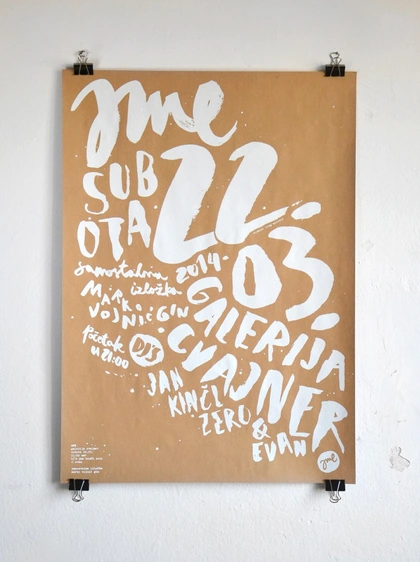 jme
SUB
OTA
22
03.
samostalna
izložba
2014.
MARKO
VOJNIĆ GIN
Početak
u 21:00
GALERIJA
CVAJNER
DJ'S
JAN
KINČL
ZERO
&
EVAN
jme